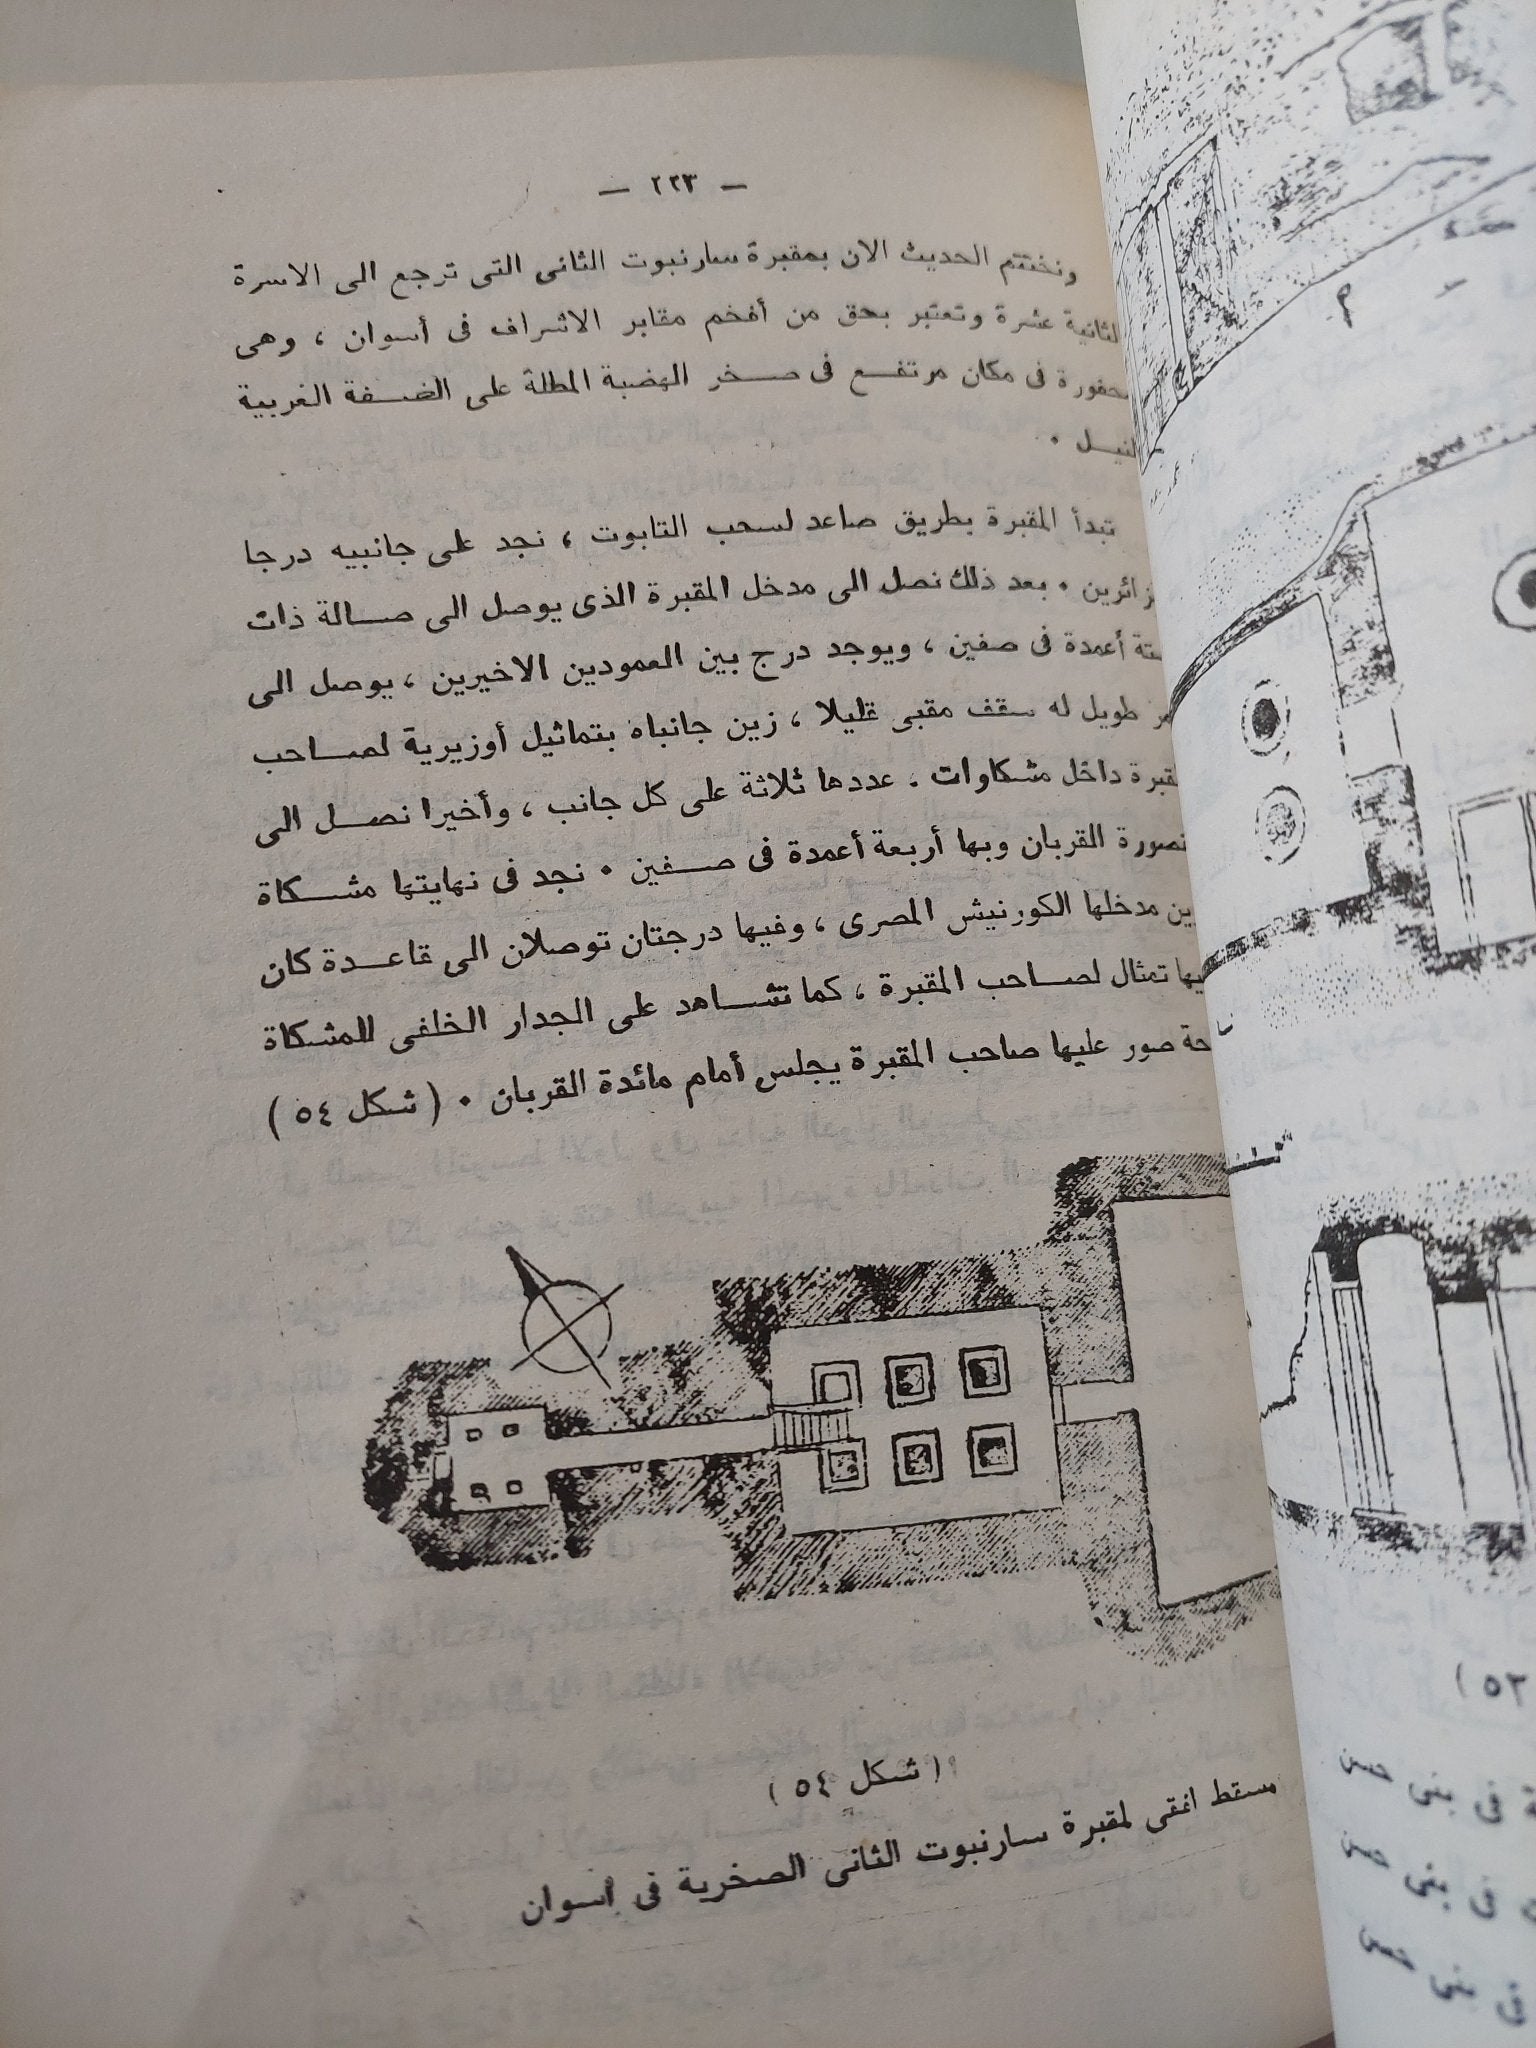 — ٢٢٣ —
ونختتم الحديث الان بمقبرة سارنبوت الثانى التى ترجع الى الاسرة
لثانية عشرة وتعتبر بحق من أفخم مقابر الاشراف فى أسوان ، وهى
حفورة فى مكان مرتفع فى صخر الهضبة المطلة على الضفة الغربية
لنيل .
تبدأ المقبرة بطريق صاعد لسحب التابوت ، نجد على جانبيه درجا
زائرين . بعد ذلك نصل الى مدخل المقبرة الذى يوصل الى صالة ذات
ستة أعمدة فى صفين ، ويوجد درج بين العمودين الاخيرين ، يوصل الى
طويل له سقف مقبى قليلا ، زين جانباه بتماثيل أوزيرية لصاحب
قبرة داخل مشكاوات . عددها ثلاثة على كل جانب ، وأخيرا نصل الى
صورة القربان وبها أربعة أعمدة فى صفين . نجد فى نهايتها مشكاة
ين مدخلها الكورنيش المصرى ، وفيها درجتان توصلان الى قاعدة كان
يها تمثال لصاحب المقبرة ، كما تشاهد على الجدار الخلفى للمشكاة
حة صور عليها صاحب المقبرة يجلس أمام مائدة القربان . ( شكل ٥٤ )
( شكل ٥٤ )
مسقط افقى لمقبرة سارنبوت الثانى الصخرية فى اسوان
٥٣ )
فى بنى حسن
فى بنى حسن
فى بنى حسن